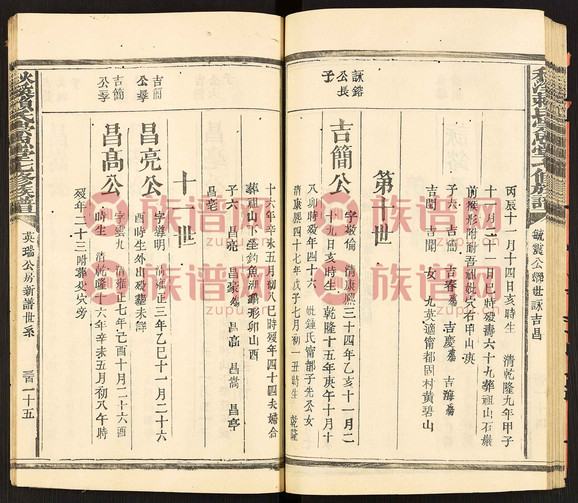 丙辰十一月十四日亥時生　清乾隆九年甲子
十一月二十一日巳時殁壽六十九葬祖山石巖
前猴形附耐吾祖妣穴右甲山庚
子六　吉亮　吉春　吉慶　吉海
吉閏　吉聞　女　九英適甯都固村黄碧山
第十世
詠鎔
公長
子
吉簡公
字敬倫　清康熙三十四年乙亥十一月二
十九日亥時生　乾隆十五年庚午十月十
八卯時殁年四十六　妣鍾氏甯都子先公女
清康熙四十七年戊子七月初一丑時生　乾隆
十六年辛未五月初八巳時殁年四十四夫婦合
葬祖山下坐釣魚湖獅形卯山酉
子六　昌亮　昌高　昌崙　昌亭
昌亳
十一世
吉簡
公孚
昌亮公
字導明　清雍正三年乙巳十一月二十六
酉時生外出殁葬未詳
吉簡
公季
昌高公
字雲九　清雍正七年己酉十月二十六酉
時生　清乾隆十六年辛未五月初八午時
殁年二十三附葬父穴旁
英瑞公房新譜世系
三百一十五